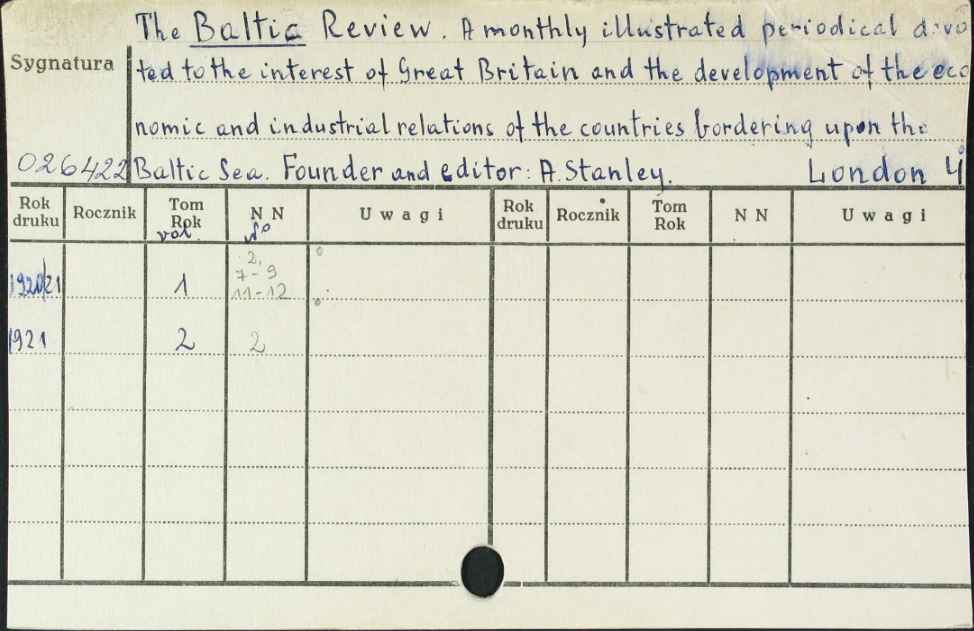 The Baltic Review. A monthly illustrated periodical devo
Sygnatura
ted to the interest of Great Britain and the development of the eco
nomic and industrial relations of the countries bordering upon the
026422 Baltic Sea. Founder and editor: A. Stanley. London 4°
Rok druku Rocznik Tom Rok vol. N N No U w a g i Rok druku Rocznik Tom Rok N N U w a g i
1920/21 1 2, 7-9 11-12
1921 2 2